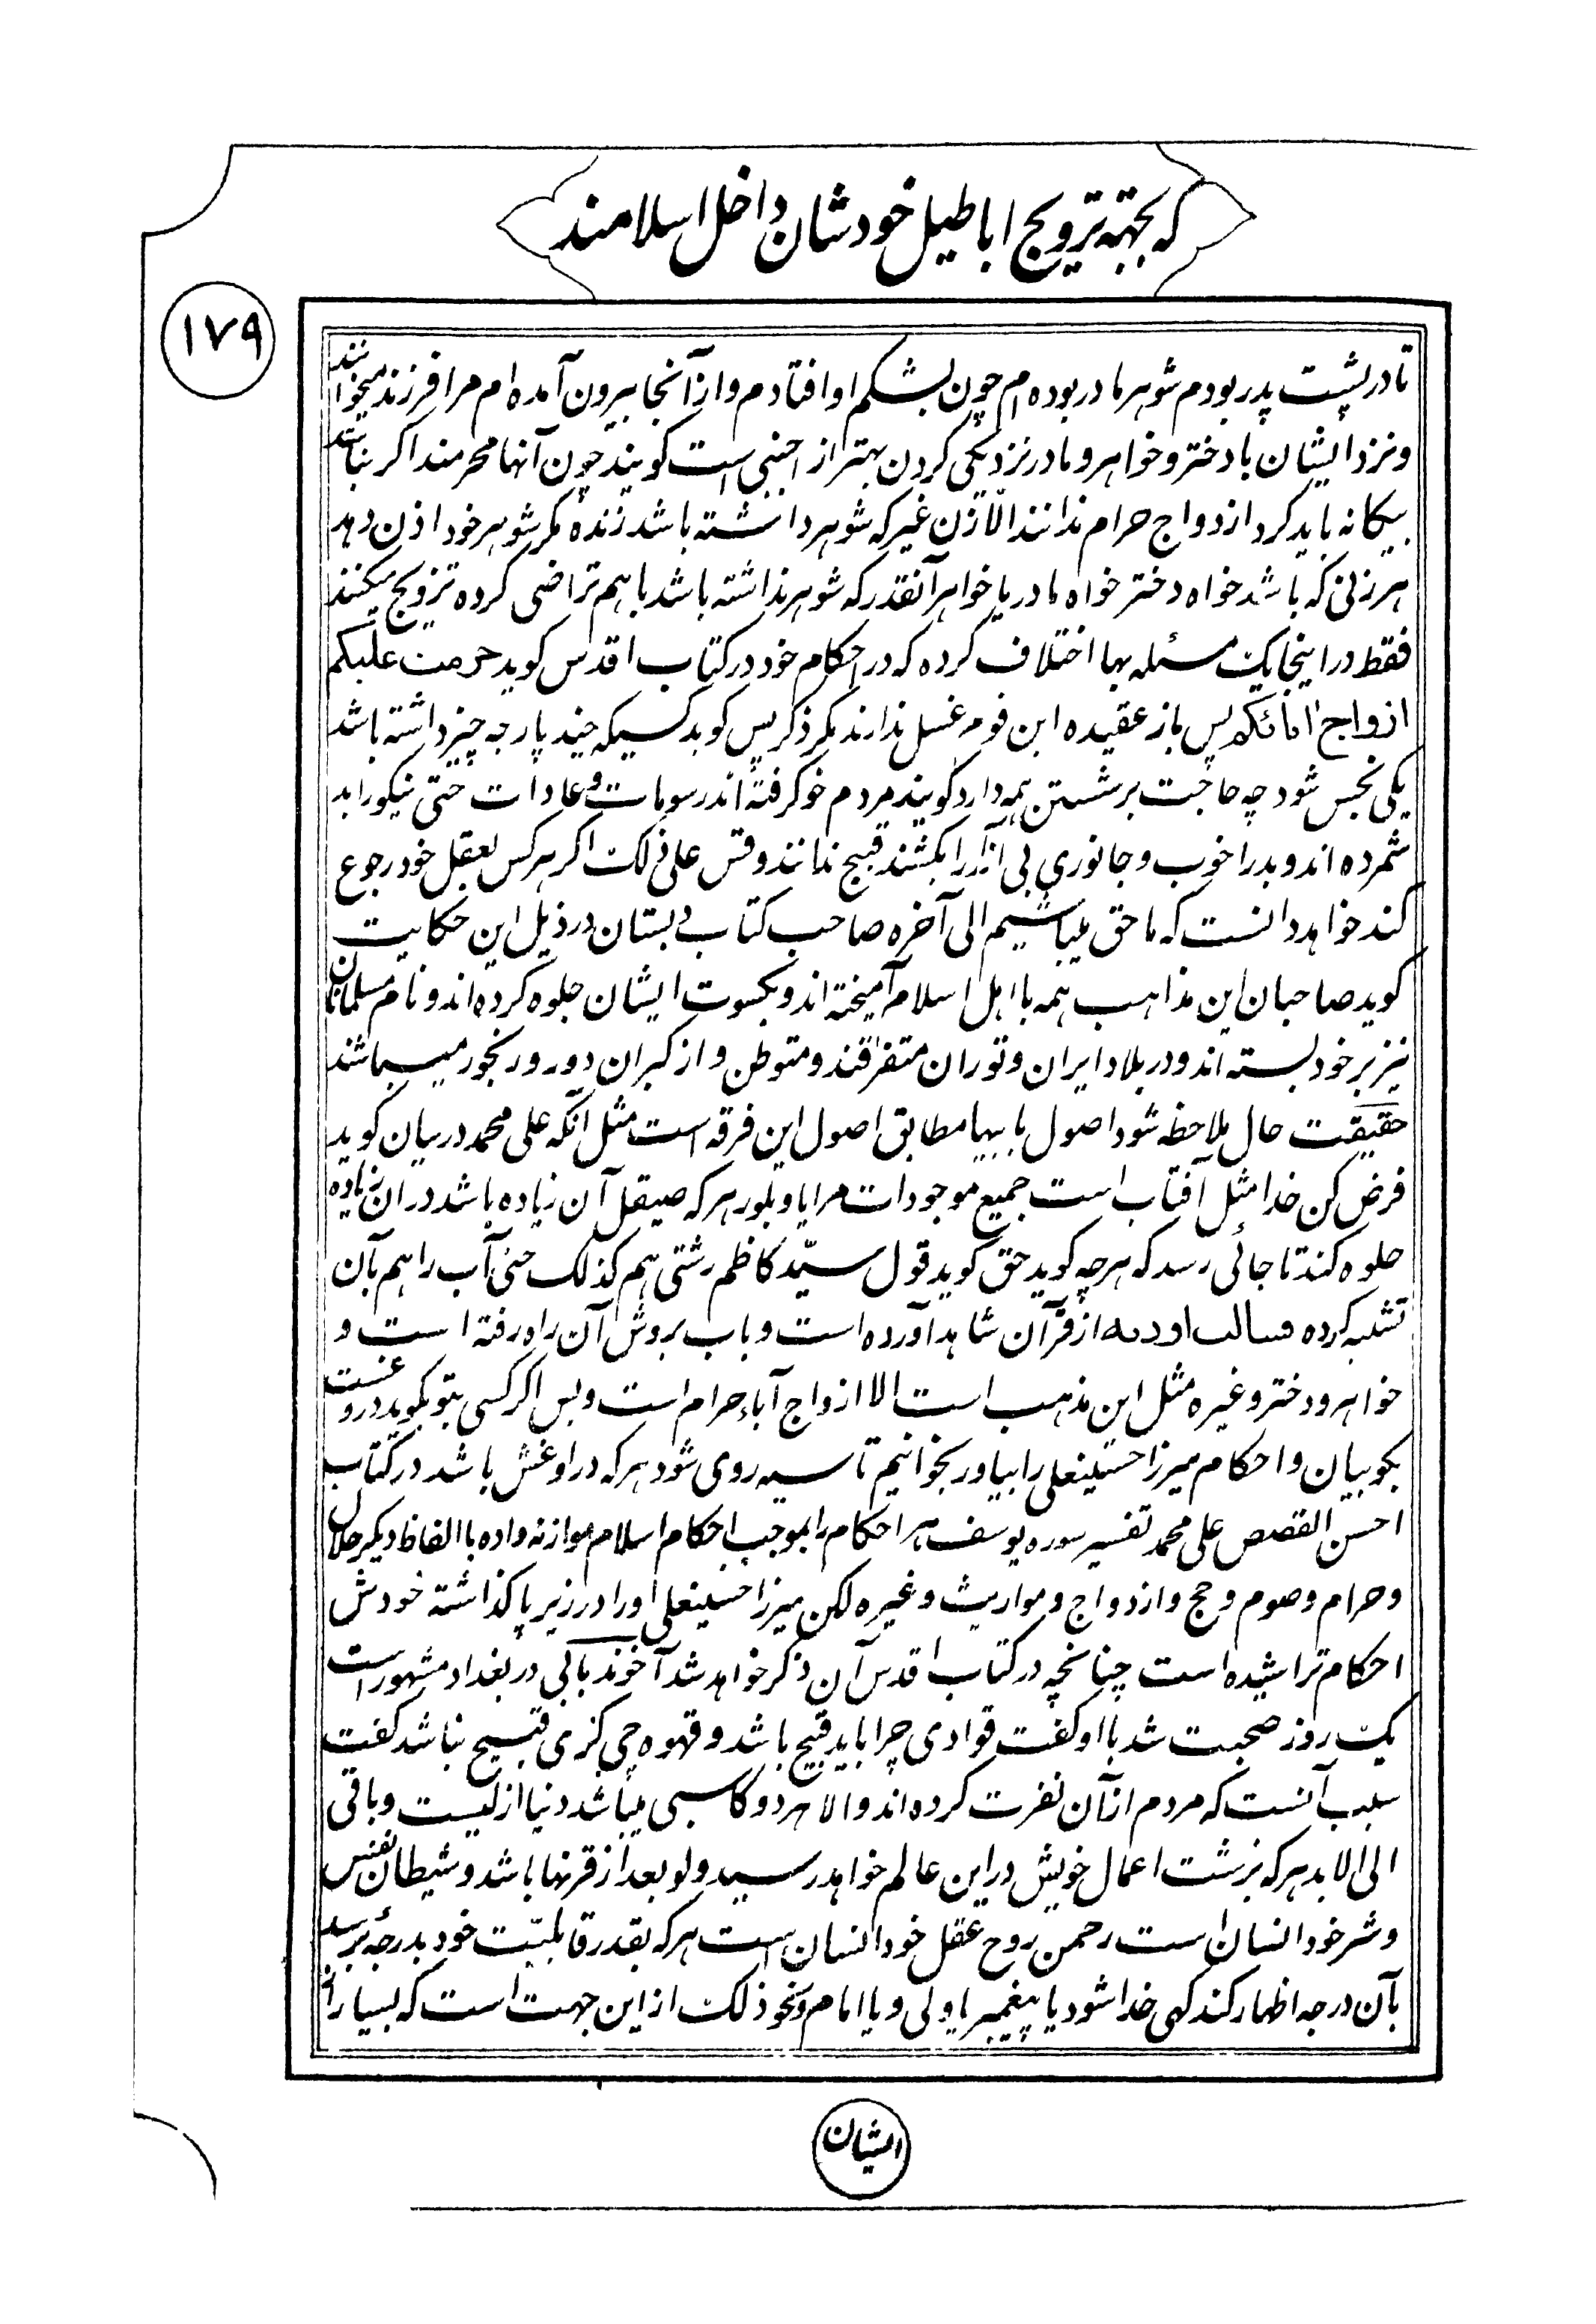 که بجهته ترویج اباطیل خودشان داخل اسلامند
۱۷۹
تا در پشت پدر بودم شوهر مادر بوده‌ام چون بشکم او افتادم و از آنجا بیرون آمده‌ام مرا فرزند میخوانند
و نزد ایشان با دختر و خواهر و مادر نزدیکی کردن بهتر از اجنبی است گویند چون آنها محرمند اگر نباشد
بیکانه باید کرد ازدواج حرام ندانند الّا زن غیر که شوهر داشته باشد زنده مکر شوهر خود اذن دهد
هر زنی که باشد خواه دختر خواه مادر یا خواهر آنقدر که شوهر نداشته باشد با هم تراضی کرده تزویج میکنند
فقط در اینجا یک مسئله بها اختلاف کرده که در احکام خود در کتاب اقدس کوید حرمت علیکم
ازواج ابائکم پس باز عقیده این قوم غسل ندارند مکر ذکر پس کوید کسیکه چند پارچه چیز داشته باشد
یکی نجس شود چه حاجت بر شستن همه دارد کویند مردم خو کرفته‌اند رسومات و عادات حتی نیکو را بد
شمرده‌اند و بد را خوب و جانوری بی آزار را بکشند قبیح ندانند و قس علی ذلک اکر هر کس بعقل خود رجوع
کند خواهد دانست که ما حق میباشیم الی آخره صاحب کتاب دبستان در ذیل این حکایت
کوید صاحبان این مذاهب همه با اهل اسلام آمیخته‌اند و بکسوت ایشان جلوه کرده‌اند و نام مسلمانان
نیز بر خود بسته‌اند و در بلاد ایران و توران متفرقند و متوطن و از کبران دور و رنجور میباشند
حقیقت حال ملاحظه شود اصول بابیها مطابق اصول این فرقه است مثل آنکه علی محمد در بیان کوید
فرض کن خدا مثل آفتاب است جمیع موجودات مرایا و بلور هر که صیقل آن زیاده باشد در آن زیاده
جلوه کند تا جائی رسد که هر چه کوید حق کوید قول سیّد کاظم رشتی هم کذلک حتی آب را هم بآن
تشبیه کرده فسالت اودیه از قرآن شاهد آورده است و باب بروش آن راه رفته است و
خواهر و دختر و غیره مثل این مذهب است الا ازواج آباء حرام است و بس اکر کسی بتو بکوید دروغست
بکو بیان و احکام میرزا حسینعلی را بیاور بخوانیم تا سیه روی شود هر که در او غش باشد در کتاب
احسن القصص علی محمد تفسیر سوره یوسف هر احکام را بموجب احکام اسلام موازنه داده با الفاظ دیکر حلال
و حرام و صوم و حج و ازدواج و مواریث و غیره لکن میرزا حسینعلی او را در زیر پا کذاشته خودش
احکام تراشیده است چنانچه در کتاب اقدس آن ذکر خواهد شد آخوند بالی در بغداد مشهور است
یک روز صحبت شد با او کفت قوادی چرا باید قبیح باشد و قهوه چی کری قبیح نباشد کفت
سبب آنست که مردم از آن نفرت کرده‌اند و الا هر دو کاسبی میباشد دنیا ازلیست و باقی
الی الابد هر که بزشت اعمال خویش در این عالم خواهد رسید ولو بعد از قرنها باشد و شیطان نفس
و شر خود انسان است رحمن روح عقل خود انسان است هر که بقدر قابلیّت خود بدرجهٔ برسد
بآن درجه اظهار کند کهی خدا شود یا پیغمبر یا ولی و یا امام و نحو ذلک از این جهت است که بسیار از
ایشان